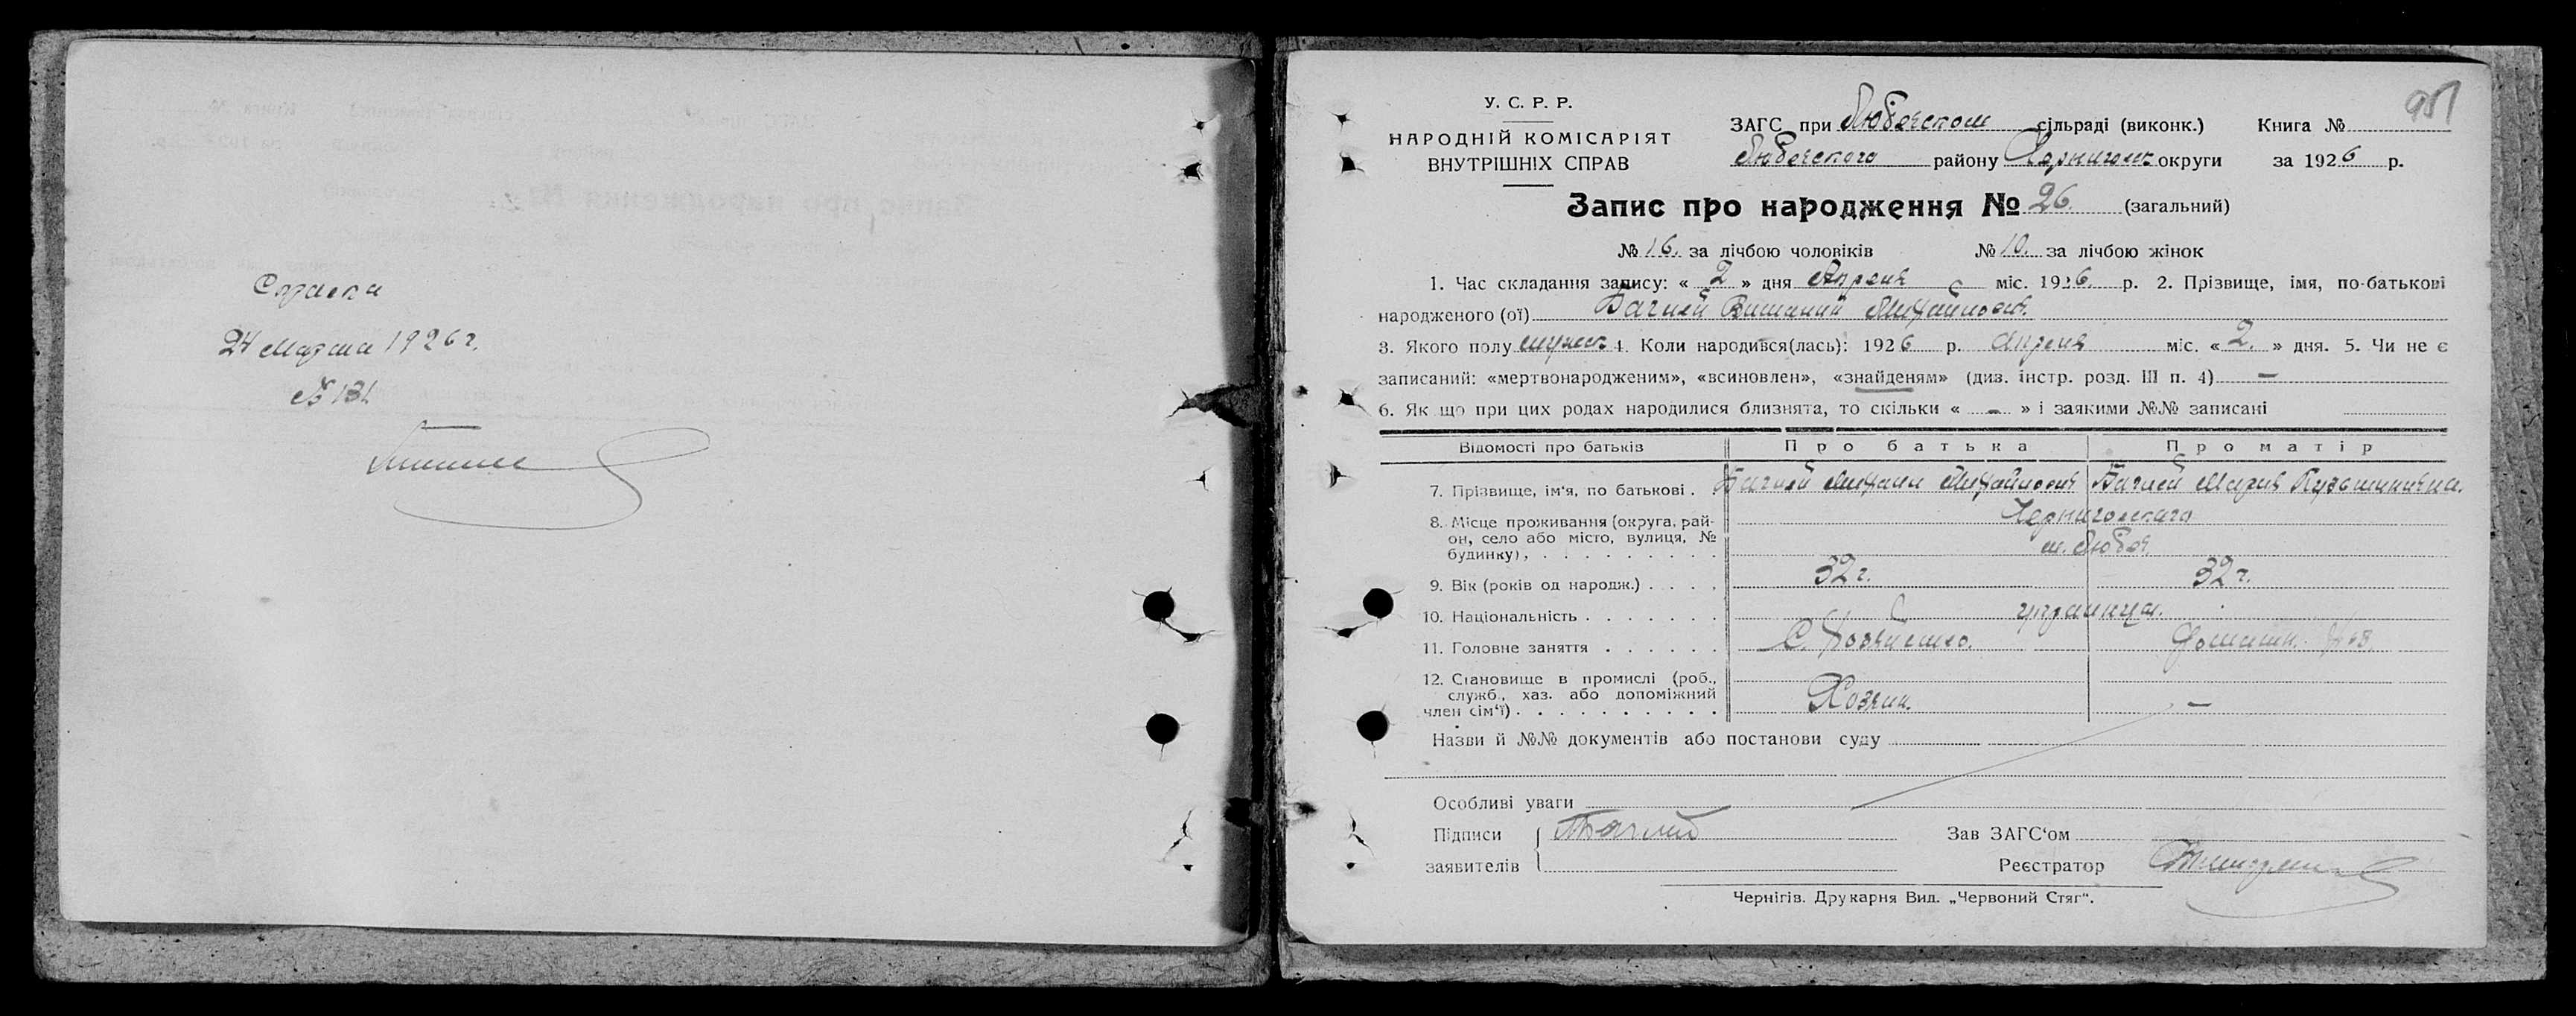 Справка
24 Марта 1926 г.
№ 131
951
У. С. Р. Р.
НАРОДНІЙ КОМІСАРІЯТ
ВНУТРІШНІХ СПРАВ
ЗАГС при Любечском сільраді (виконк.) Книга №
Любечского району Черниговск округи за 1926 р.
Запис про народження № 26. (загальний)
№ 16. за лічбою чоловіків № 10. за лічбою жінок
1. Час складання запису: « 2 » дня Апреля міс. 1926. р. 2. Прізвище, імя, по-батькові
народженого (ої) Михайлович.
3. Якого полу мужск 4. Коли народився(лась): 1926 р. Апреля міс. « 2. » дня. 5. Чи не є
записаний: «мертвонародженим», «всиновлен», «знайденям» (див. інстр. розд. III п. 4) —
6. Як що при цих родах народилися близнята, то скільки « – » і заякими №№ записані
Відомості про батьків Про батька Про матір
7. Прізвище, ім'я, по батькові . Михаил Михайлович Мария Кузьминична.
8. Місце проживання (округа, рай-
он, село або місто, вулиця, №
будинку), . . . . . . . . . Черниговского
м. Любеч.
9. Вік (років од народж.) . . . . 32 г. 32 г.
10. Національність . . . . . . . украинцы.
11. Головне заняття . . . . . . С. Хозяйство. Домашн.
12. Становище в промислі (роб.,
служб., хаз. або допоміжний
член сім'ї) . . . . . . . . . . Хозяин. —
Назви й №№ документів або постанови суду
Особливі уваги
Підписи
заявителів
Зав ЗАГС'ом
Реєстратор
Чернігів. Друкарня Вид. „Червоний Стяг".